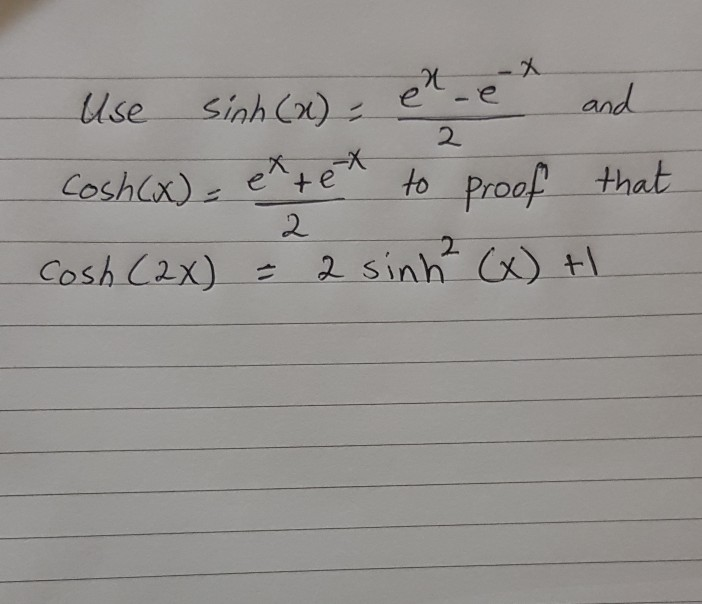 Use sinh(x) = \frac{e^x - e^{-x}}{2} and
Cosh(x) = \frac{e^x + e^{-x}}{2} to proof that
Cosh(2x) = 2 sinh^2 (x) +1